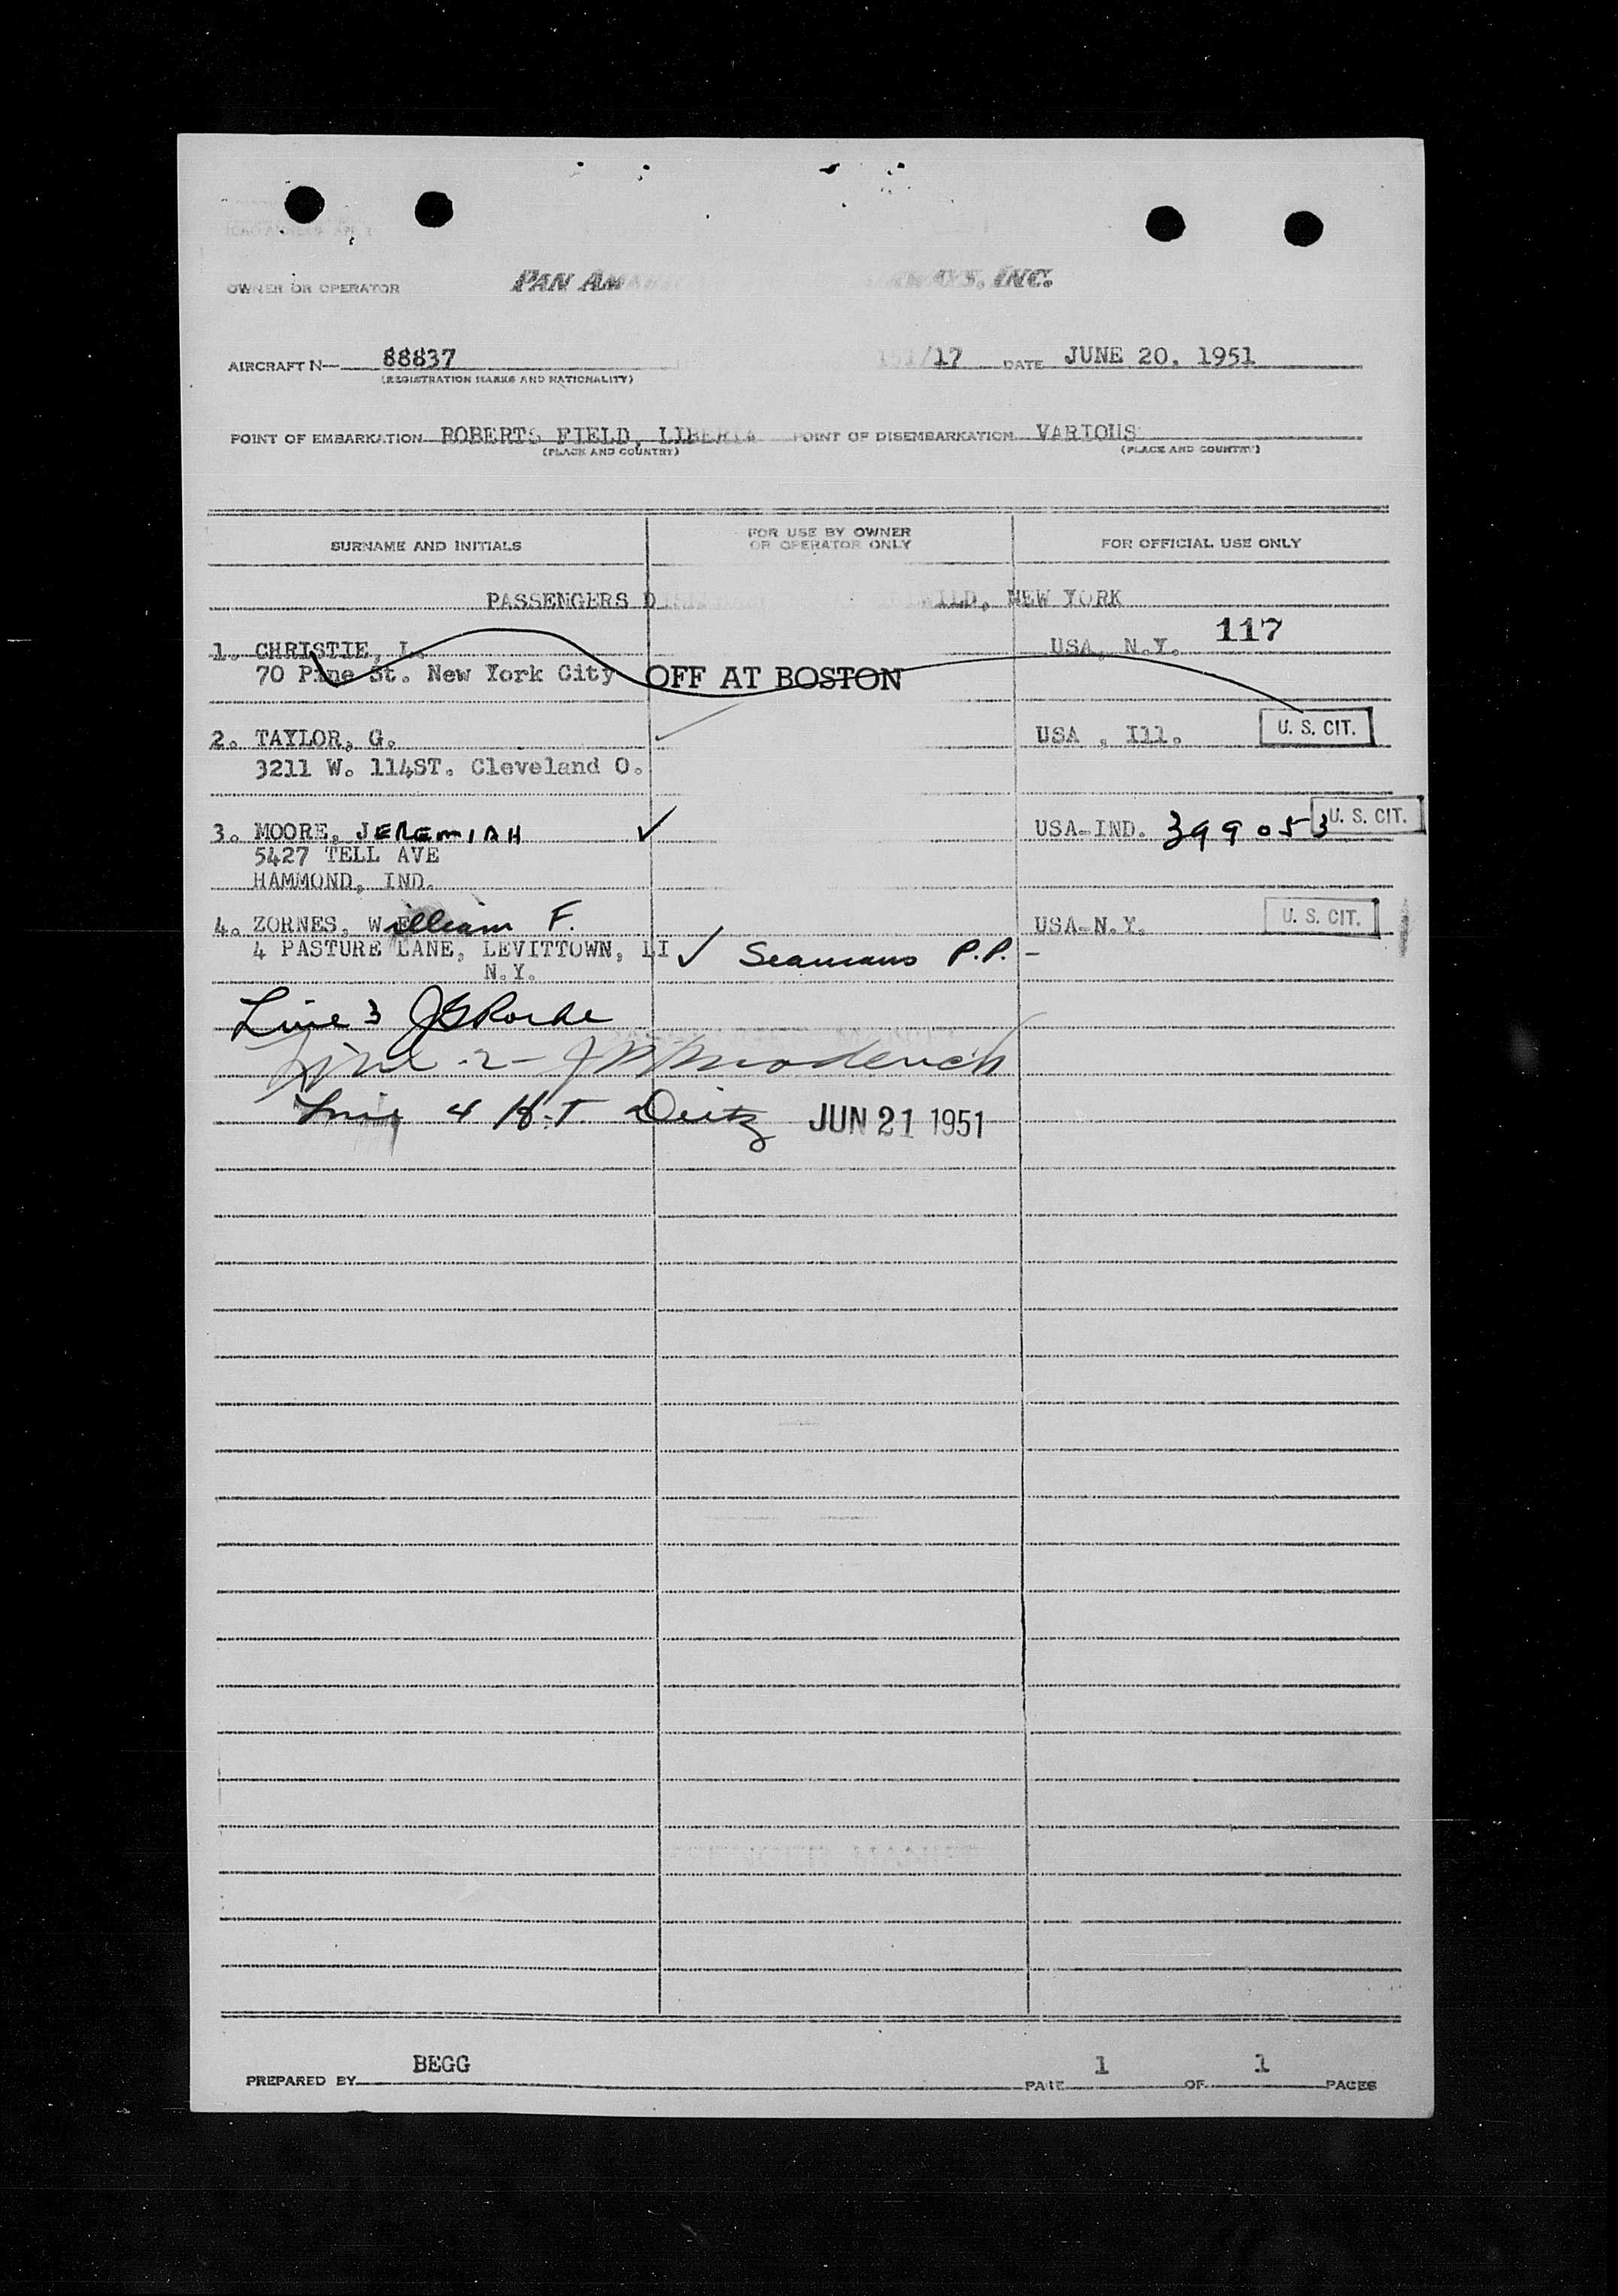 OWNER OR OPERATOR PAN AM INC.
AIRCRAFT N— 88837 /17 DATE JUNE 20, 1951
(REGISTRATION MARKS AND NATIONALITY)
POINT OF EMBARKATION ROBERTS FIELD, LIBERIA POINT OF DISEMBARKATION VARIOUS
(PLACE AND COUNTRY) (PLACE AND COUNTRY)
SURNAME AND INITIALS FOR USE BY OWNER OR OPERATOR ONLY FOR OFFICIAL USE ONLY
PASSENGERS NEW YORK
117
1. CHRISTIE, L. USA, N.Y.
70 Pine St. New York City OFF AT BOSTON
2. TAYLOR, G. USA , Ill. U. S. CIT.
3211 W. 114ST. Cleveland O.
3. MOORE, JEREMIAH USA-IND. 399053 U. S. CIT.
5427 TELL AVE
HAMMOND, IND.
4. ZORNES, William F. USA-N.Y. U. S. CIT.
4 PASTURE LANE, LEVITTOWN, LI Seamans P.P. -
N.Y.
Line 3
Line -2-
Line 4 H.T. Deitz JUN 21 1951
PREPARED BY BEGG PAGE 1 OF 1 PAGES